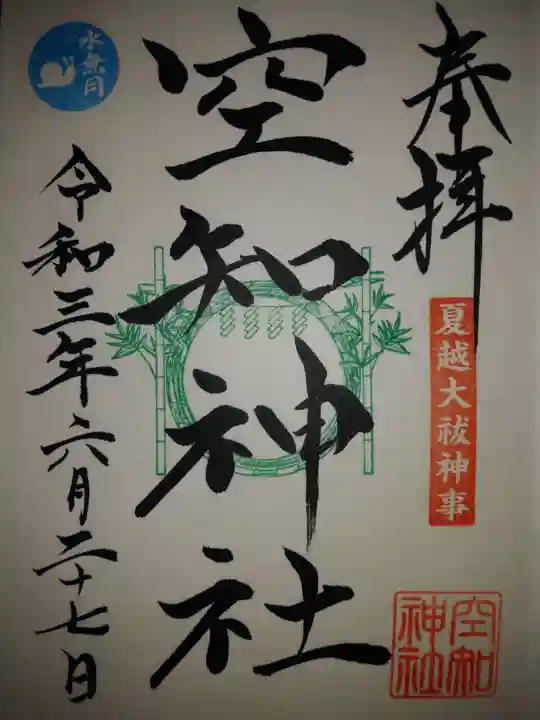 奉拝
夏越大祓神事
空知神社
空知神社
令和三年六月二十七日
水無月